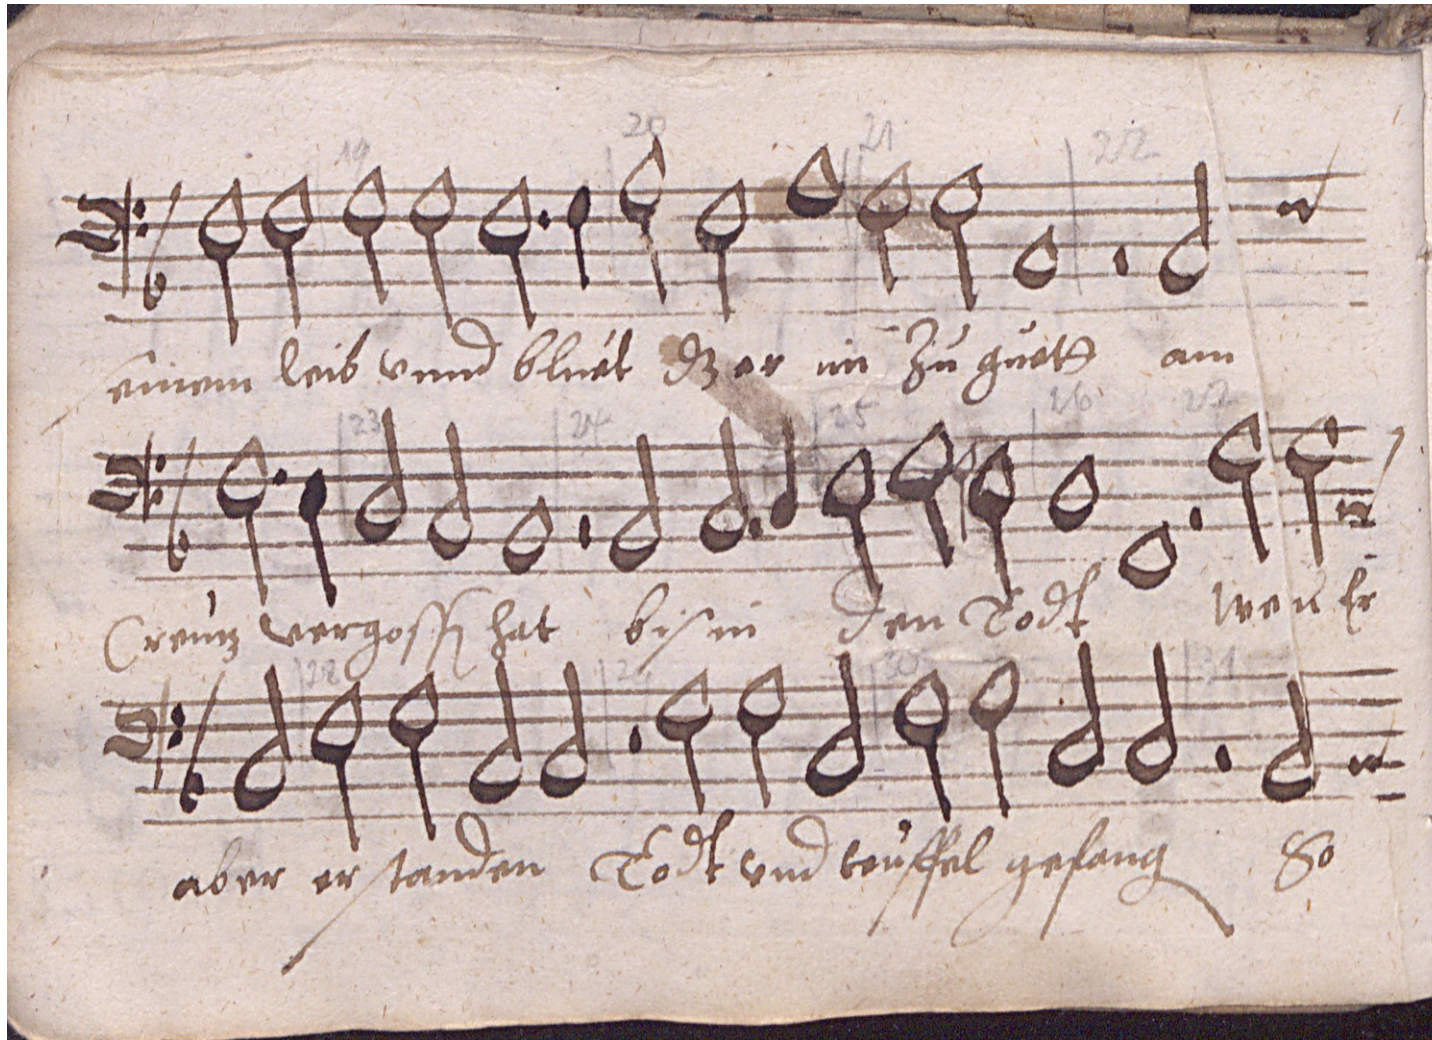 19 20 21 22
seinem leib vnnd bluet dz er im zu guett am
23 24 25 26 27
Creutz vergossen hat bis in den Todt wen Er
28 29 30 31
aber erstanden Todt vnd teuffel gefang So